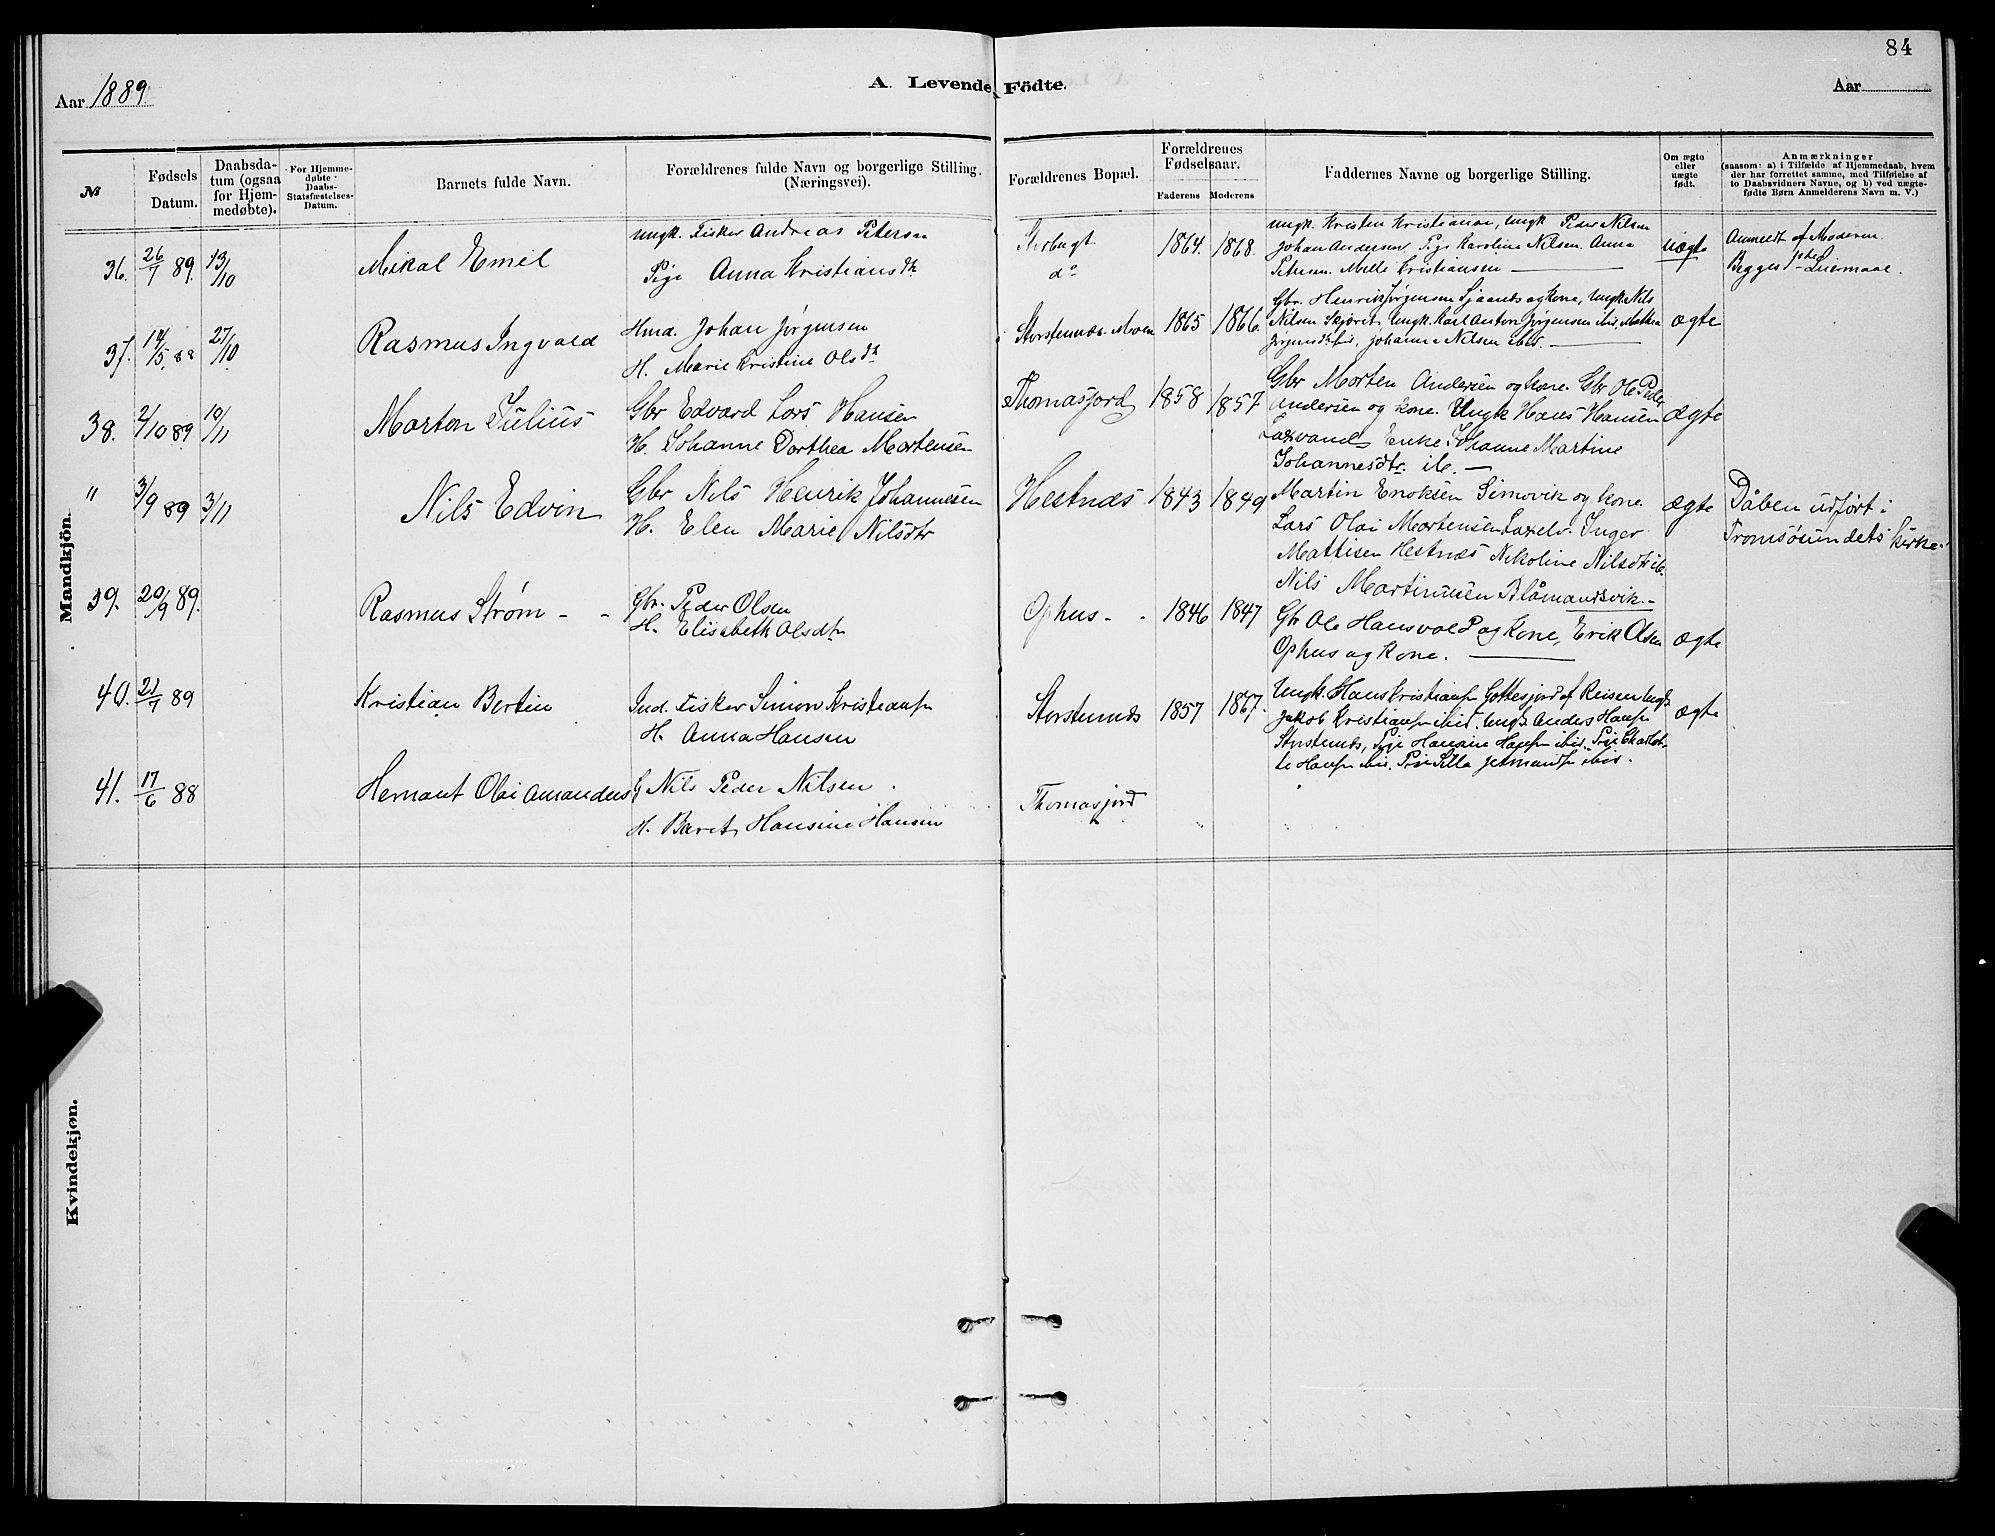 84
Aar 1889.
A. Levende Födte.
Aar
№
Fødsels Datum.
Daabsdatum (ogsaa for Hjemmedøbte).
For Hjemmedøbte Daabs-Stadfæstelses-Datum.
Barnets fulde Navn.
Forældrenes fulde Navn og borgerlige Stilling. (Næringsvei).
Forældrenes Bopæl.
Forældrenes Fødselsaar.
Faderens Moderens
Faddernes Navne og borgerlige Stilling.
Om ægte eller uægte født.
Anmærkninger
(saasom: a) i Tilfælde af Hjemmedaab, hvem
der har forrettet samme, med Tilføielse af
to Daabsvidners Navne, og b) ved uægte-
fødte Børn Anmelderens Navn m. V.)
Mandkjön.
36. 26/7 89. 13/10 Mikal Emil
Ungk. Fisker Andreas Petersen
Pige Anna Kristiansdtr
do
1864. 1868.
Ungk. Kristen Kristiansen, Ungk Peder Nilsen
Johan Andersen, Pige Karoline Nilsen. Anna
Petersen. Kristiansen
uægte
Anmeldt af Moderen
Begges 1ste Leiermaal.
37. 14/5 88 27/10 Rasmus Ingvald
Hmd. Johan Jørgensen
H. Marie Kristine Olsdtr
Storstennæs. Moen 1865 1866.
Gbr. Henrik Jørgensen og Kone, Ungk. Nils
Nilsen Skjæret, Ungk. Karl Anton Jørgensen ibid, Mathea
Johanna Nilsen ibid.
ægte
38. 2/10 89 10/11 Morten Julius
Gbr Edvard Lars Hansen
H. Johanne Dorthea Mortensen
Thomasjord 1858 1857
Gbr Morten Andersen og Kone. Gbr Ole Peder
Andersen og Kone. Ungk Hans Hansen
Laxvand Enke Johanne Martine
Johannesdtr. ib.
ægte
" 3/9 89 3/11 Nils Edvin
Gbr Nils Henrik Johannesen
H. Elen Marie Nilsdtr
Hestnæs 1843 1849
Martin Enoksen Simovik og Kone
Lars Olai Mortensen Laxelv. Inger
Mattisen Hestnæs Nikoline Nilsdtr ib.
Nils Martinusen Blåmandsvik.
ægte
Dåben udført i
Tromsøsundets Kirke.
39. 20/9 89. Rasmus Strøm
Gbr. Peder Olsen
H. Elisabeth Olsdtr
Ophus 1846 1847
Gbr Ole Hansvold og Kone, Erik Olsen
Ophus og Kone.
ægte
40. 21/7 89 Kristian Bertin
Ind. Fisker Simon Kristiansen
H. Anna Hansen
Storstennæs 1857 1867.
Ungk. Hans Kristiansen Gottesjord af Reisen Ungk.
Jakob Kristiansen ibid. Ungk. Anders Hansen
Storstennæs, Pige Hansine Hansen ibid. Pige Charlot-
te Hansen ibid. Pige ibid.
ægte
41. 17/6 88 Hernant Olai Amandus
G Nils Peder Nilsen
H. Beret Hansine Hansen
Thomasjord
Kvindekjøn.